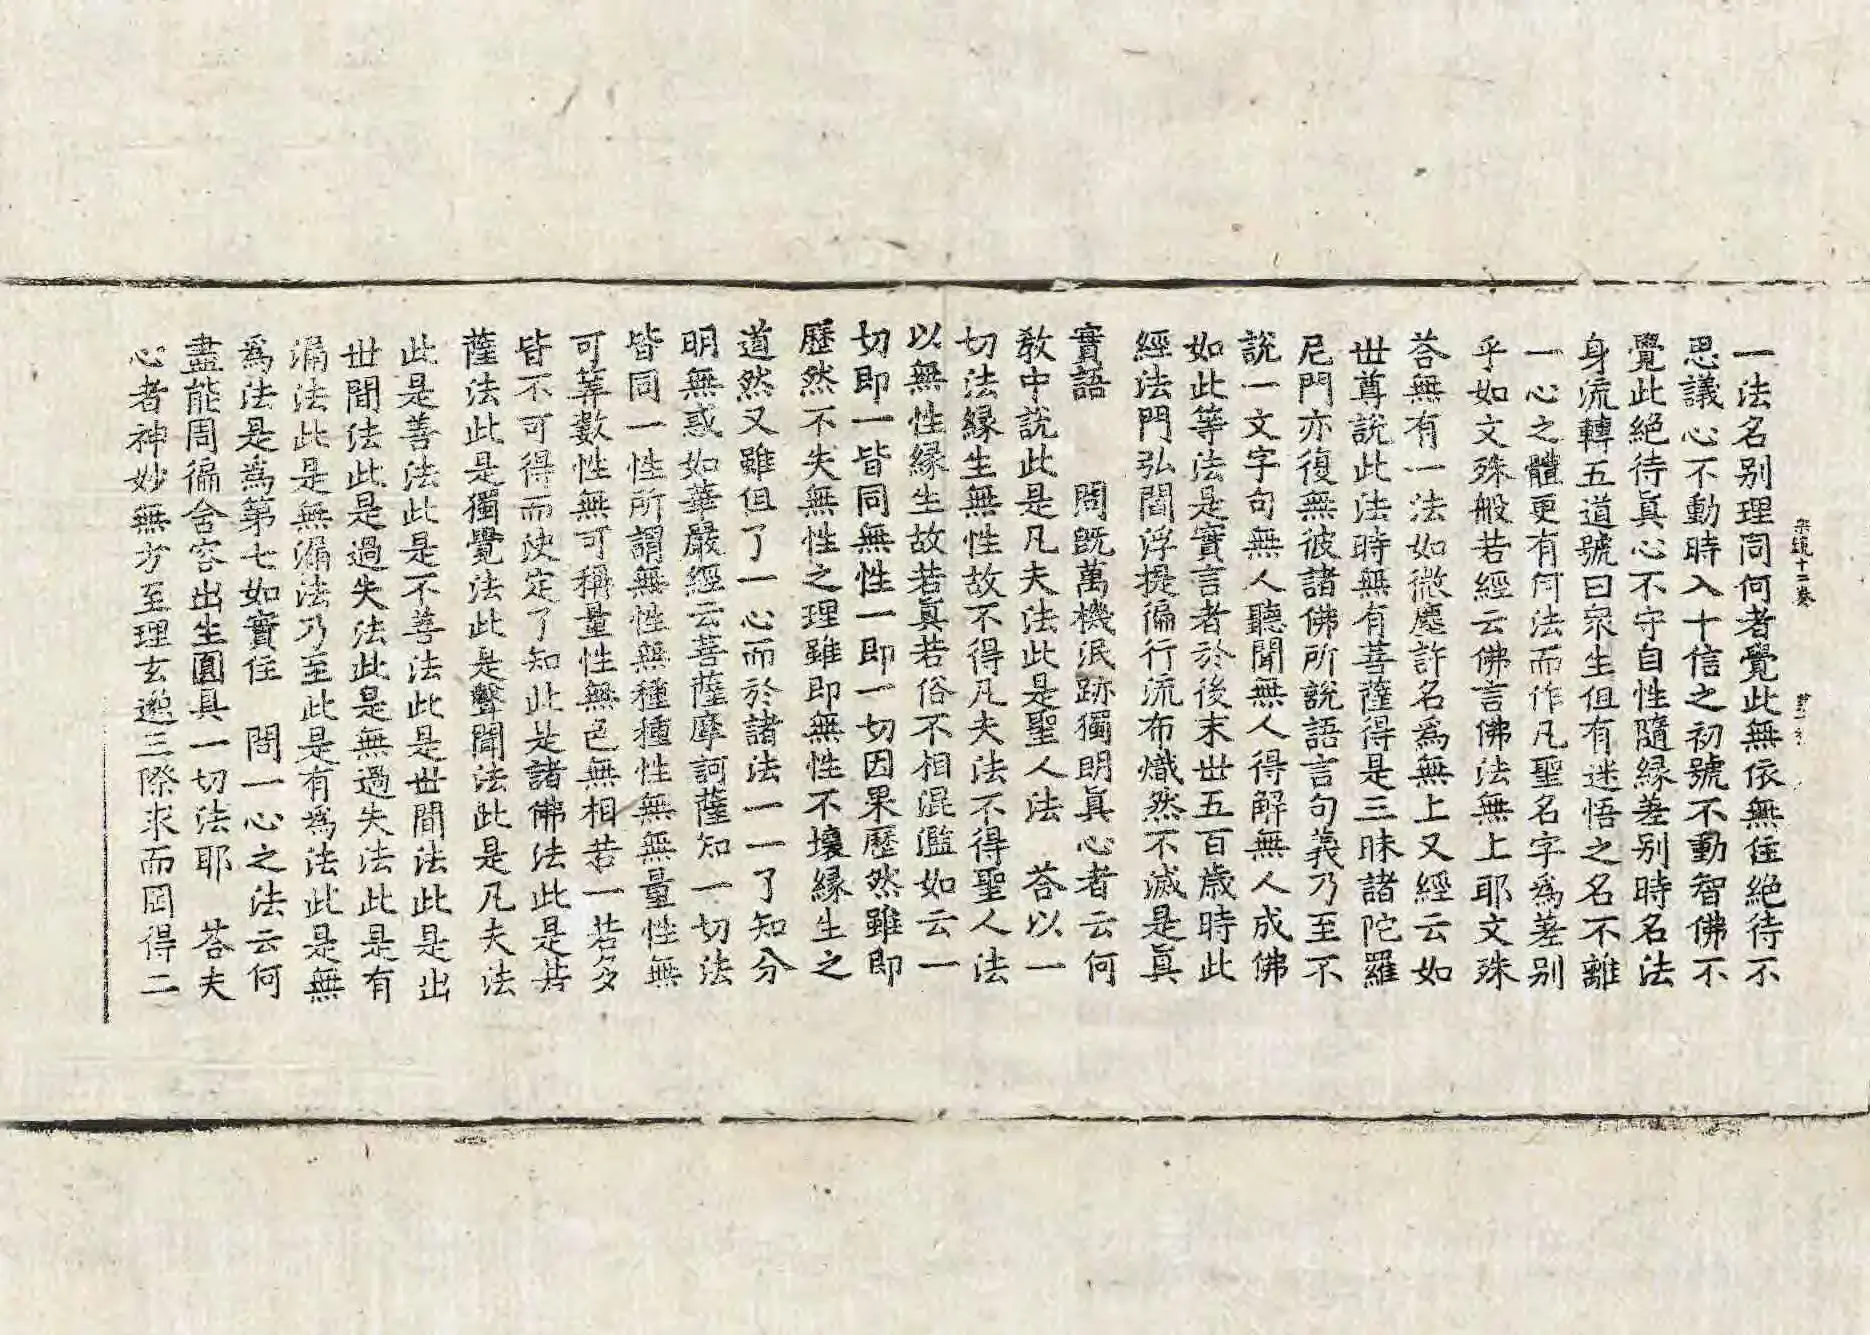 宗鏡十二卷
一法名别理同何者覺此無依無住絶待不
思議心不動時入十信之初號不動智佛不
覺此絶待真心不守自性隨緣差别時名法
身流轉五道號曰衆生但有迷悟之名不離
一心之體更有何法而作凡聖名字爲差别
乎如文殊般若經云佛言佛法無上耶文殊
荅無有一法如微塵許名爲無上又經云如
世尊說此法時無有菩薩得是三昧諸陀羅
尼門亦復無彼諸佛所說語言句義乃至不
說一文字句無人聽聞無人得解無人成佛
如此等法是實言者於後末世五百歲時此
經法門弘閻浮提徧行流布熾然不滅是真
實語 問旣萬機泯跡獨明真心者云何
教中說此是凡夫法此是聖人法 荅以一
切法緣生無性故不得凡夫法不得聖人法
以無性緣生故若真若俗不相混濫如云一
切即一皆同無性一即一切因果歷然雖即
歷然不失無性之理雖即無性不壞緣生之
道然又雖但了一心而於諸法一一了知分
明無惑如華嚴經云菩薩摩訶薩知一切法
皆同一性所謂無性無種種性無無量性無
可筭數性無可稱量性無色無相若一若多
皆不可得而決定了知此是諸佛法此是菩
薩法此是獨覺法此是聲聞法此是凡夫法
此是善法此是不善法此是世間法此是出
世間法此是過失法此是無過失法此是有
漏法此是無漏法乃至此是有爲法此是無
爲法是爲第七如實住 問一心之法云何
盡能周徧含容出生圓具一切法耶 荅夫
心者神妙無方至理玄邈三際求而罔得二